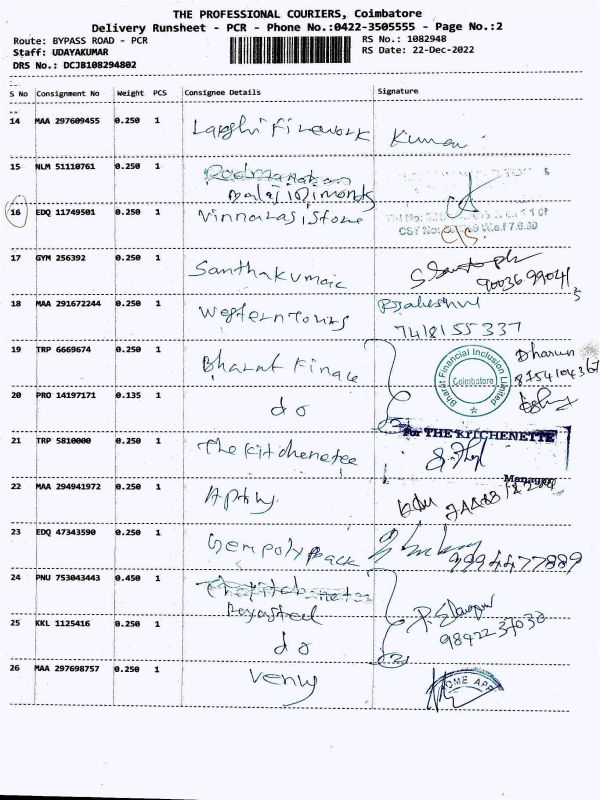 THE PROFESSIONAL COURIERS, Coimbatore
Delivery Runsheet - PCR - Phone No.:0422-3505555 - Page No.:2
Route: BYPASS ROAD - PCR
RS No.: 1082948
Staff: UDAYAKUMAR
RS Date: 22-Dec-2022
DRS No.: DCJB108294802
S No Consignment No Weight PCS Consignee Details Signature
14 MAA 297609455 0.250 1 Kumar
15 NLM 51110761 0.250 1
Balaji Dimonds
16 EDQ 11749501 0.250 1 Vinnarasi Stone
17 GYM 256392 0.250 1 Santhakumar
18 MAA 291672244 0.250 1 Western Tours
7418155337
19 TRP 6669674 0.250 1 Bharat Finace Bharat Financial Inclusion Limited Coimbatore Dharun
20 PRO 14197171 0.135 1 do
21 TRP 5810000 0.250 1 The Kitchenetee For THE KITCHENETTE
Manager
22 MAA 294941972 0.250 1
23 EDQ 47343590 0.250 1 Gempolypack 9994477889
24 PNU 753043443 0.450 1
25 KKL 1125416 0.250 1 do 9842237030
26 MAA 297698757 0.250 1 Venky HOME APP